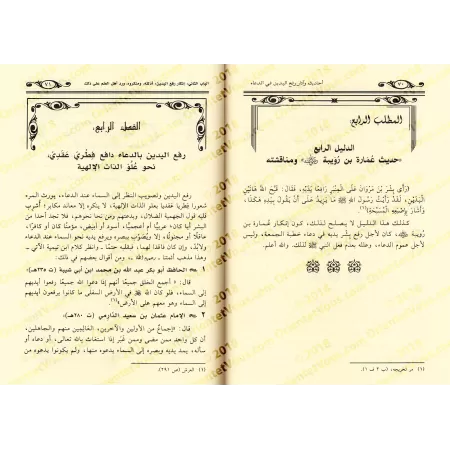 أحاديث وآثار رفع اليدين في الدعاء
٧٠
المطلب الرابع:
الدليل الرابع
«حديث عُمارة بن رُويبة ومناقشته»
(رأى بشر بن مروان على المنبر رافعًا يديه، فقال: قبح الله هاتين
اليدين، لقد رأيت رسول الله ﷺ ما يزيد على أن يقول بيده هكذا،
وأشار بإصبعه المسبحة)(١)
كذلك هذا الدليل لا يصلح لمطلوبه، لكون إنكار عمارة بن
رويبة، كان لأجل رفع بشر يديه في دعاء خطبة الجمعة، وليس
لأجل عموم الدعاء، ومثله بعدم فعل النبي ﷺ لذلك. والله أعلم.
(١) مر تخريجه، (ب ٢ ف ١).
الباب الثاني: إنكار رفع اليدين: أدلته، ومنكروه، ورد أهل العلم على ذلك
٧١
الفصل الرابع:
رفع اليدين بالدعاء دافع فِطْريّ عَقَديّ،
نحو عُلُوّ الذات الإلهية
رفع اليدين وتصويب النظر إلى السماء عند الدعاء، يورث المرء
شعورا فطريا عقديا بعلو الذات الإلهية، لا ينكره إلا معاند مكابر؛ بأشرب
قلبه قول الجهمية الضلال، وبدعتهم ومن نحا نحوهم، فلا تجد أحدا من
البشر أيا كان؛ عربيًّا أم أعجميًّا، أسود أم أبيض، مؤمنًا كان أو كافرًا،
عاقلًا أو مجنونًا، إلا ويُصَوِّب بصره ويرفع يديه نحو السماء عند الدعاء
ولابُدّ، وإن كان فاقدهما لالتفت إليها فطرة حتمًا، وانظر كلام ابن تيمية الآتي -
وهذا مذهب أئمتنا، رحمهم الله، ومن كلامهم في ذلك:
١ - الحافظ أبو بكر عبد الله بن محمد ابن أبي شيبة (ت ٢٣٥هـ):
قال: «أجمع الخلق جميعًا أنهم إذا دعوا الله جميعًا رفعوا أيديهم
إلى السماء، فلو كان الله في الأرض السفلى ما كانوا يرفعون أيديهم
إلى السماء وهو معهم على الأرض»(١).
٢ - الإمام عثمان بن سعيد الدارمي (ت ٢٨٠هـ):
قال: «إجماع من الأولين والآخرين، العالمين منهم والجاهلين،
أن كل واحد ممن مضى وممن غبر إذا استغاث بالله تعالى، أو دعاه أو
سأله، يمد يديه وبصره إلى السماء يدعوه منها، ولم يكونوا يدعوه من
(١) العرش (ص ٢٩١)